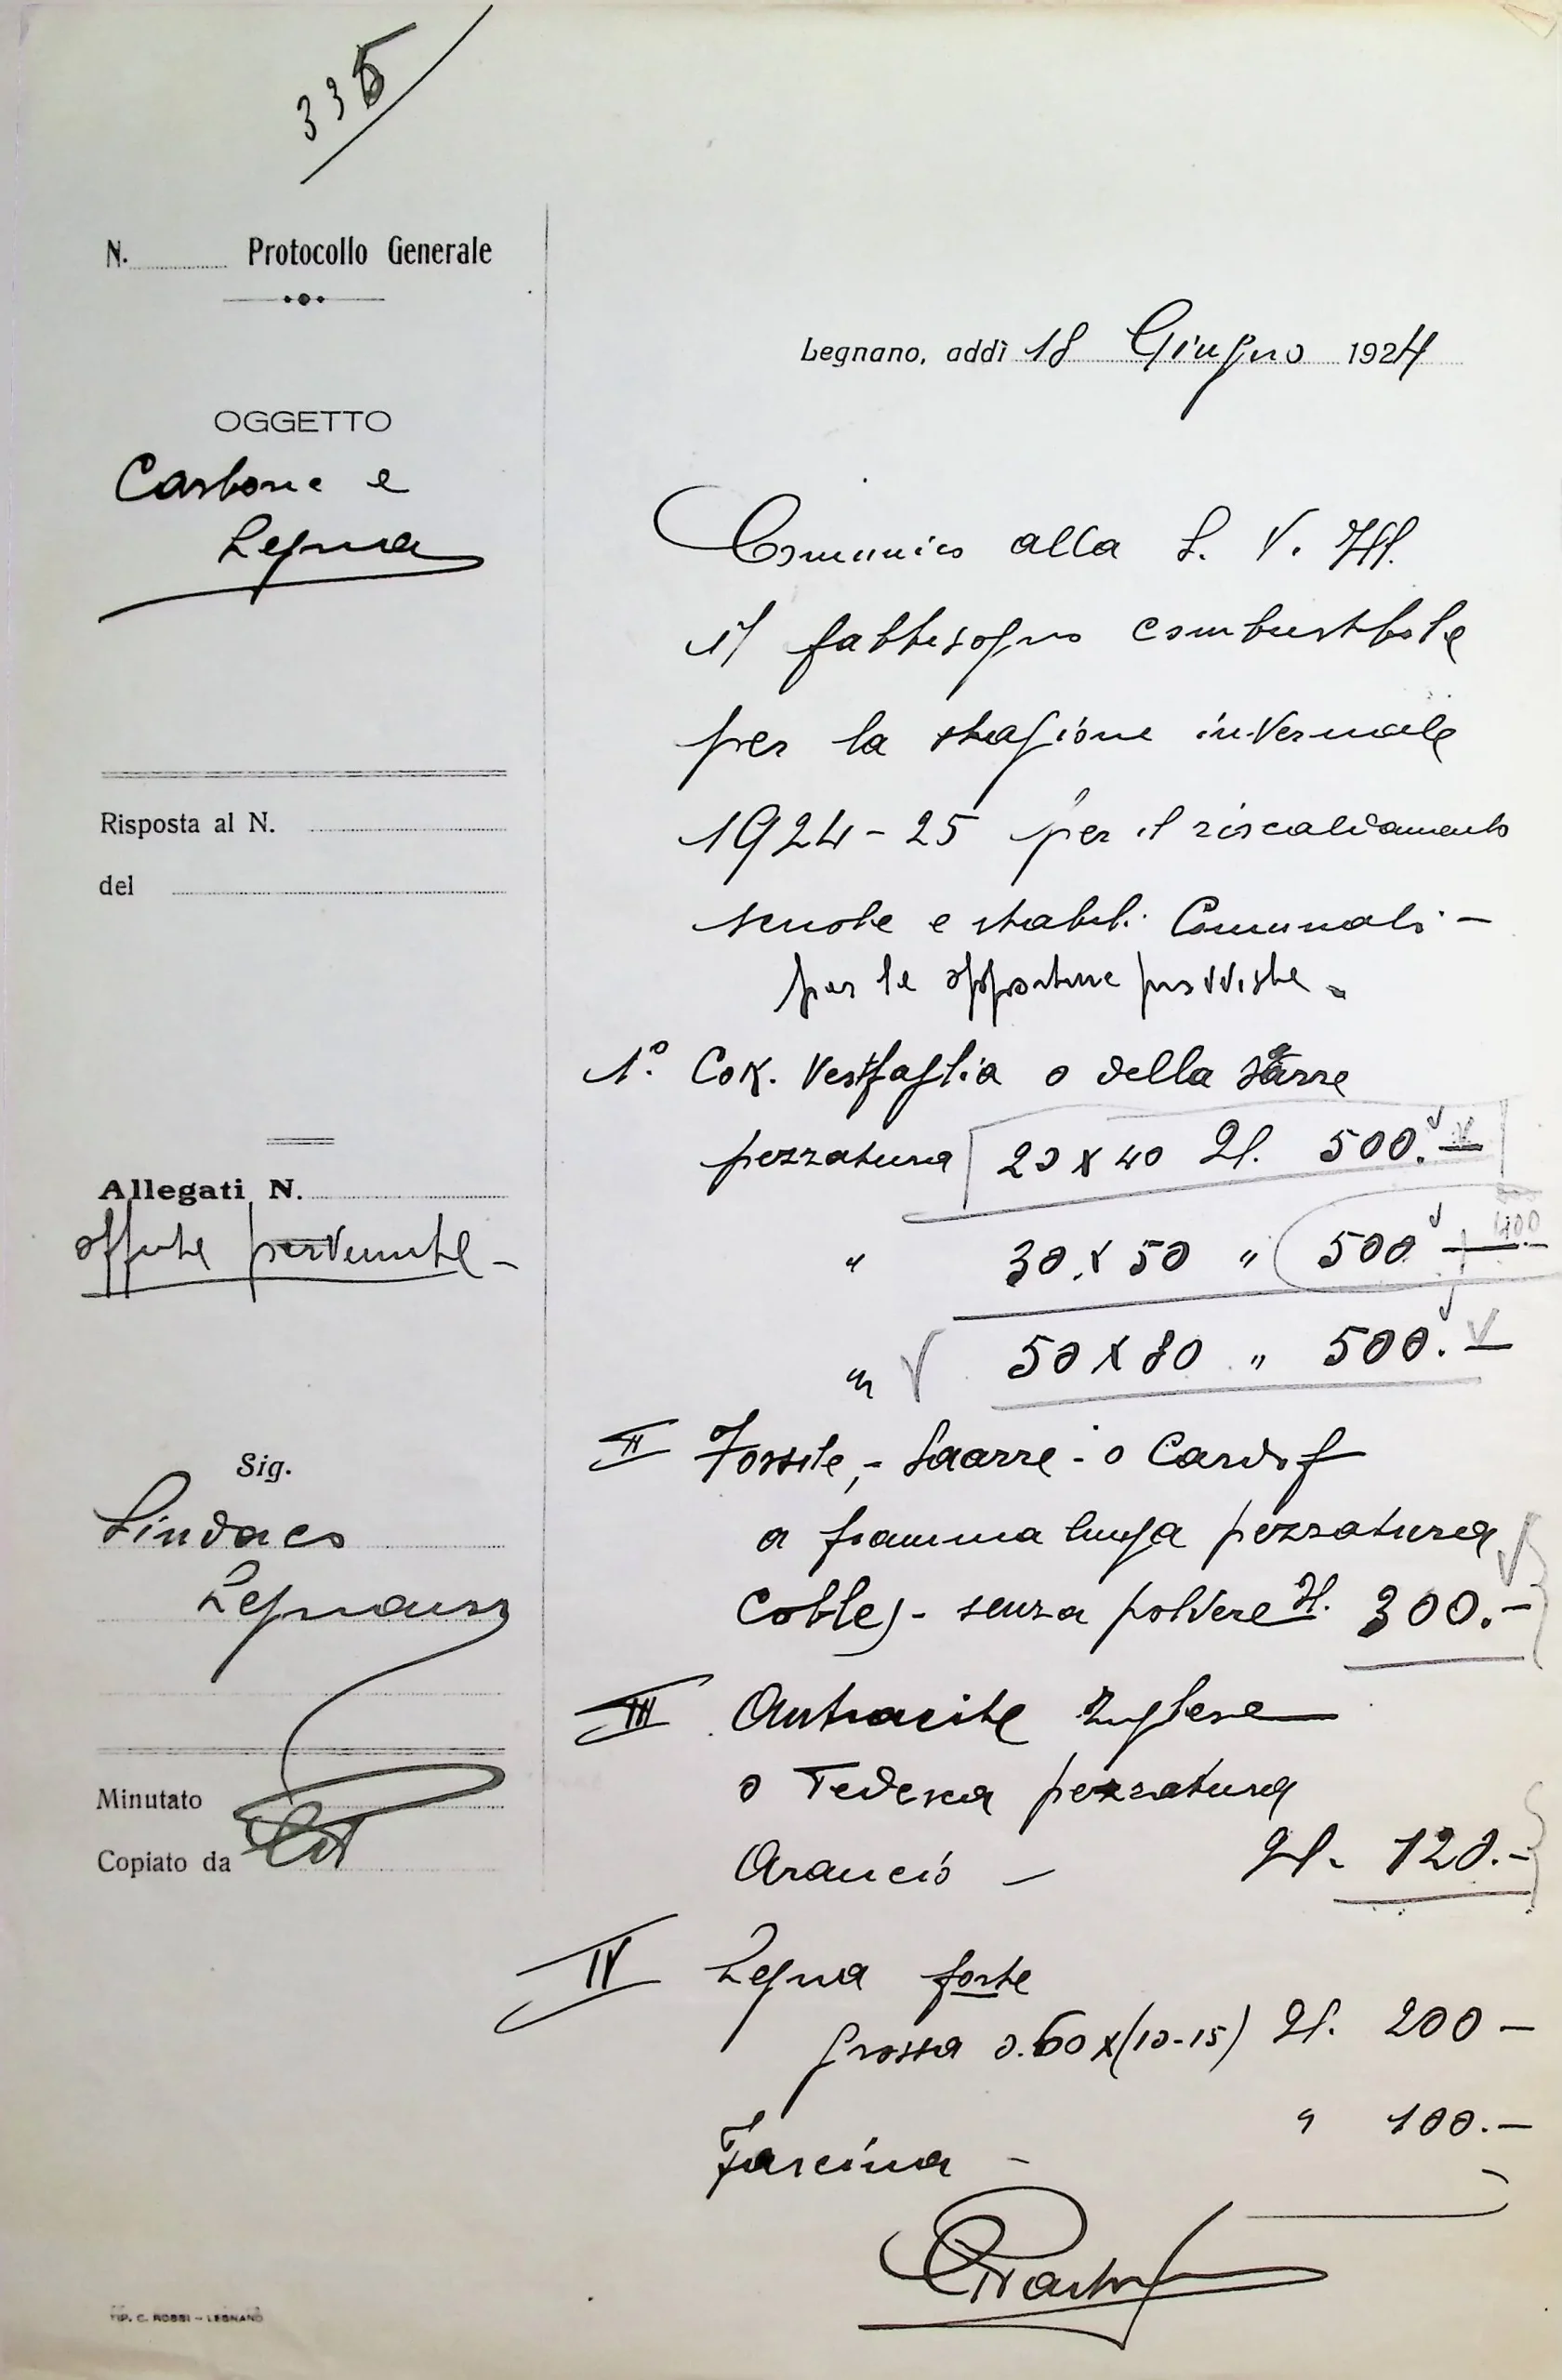 335
N. Protocollo Generale
OGGETTO
Carbone e
Legna
Risposta al N.
del
Allegati N.
offerte pervenute -
Sig.
Sindaco
Legnano
Minutato
Copiato da
TIP. C. ROSSI - LEGNANO
Legnano, addì 18 Giugno 1924
Comunico alla S. V. Ill.
il fabbisogno combustibile
per la stagione invernale
1924-25 per il riscaldamento
scuole e stabili Comunali -
per le opportune provviste.
1.° Cok. Vestfaglia o della Sarre
pezzatura 20 x 40 Ql. 500.-
" 30 x 50 " 500 - 400
" 50 x 80 " 500.-
II Fossile, - Saarre - o Cardif
a fiamma lunga pezzatura
Cobles - senza polvere Ql. 300.-
III Antracite Inglese
o Tedesca pezzatura
Arancio - Ql. 120.-
IV Legna forte
grossa 0.60 x (10-15) Ql. 200 -
" 100.-
Fascina -